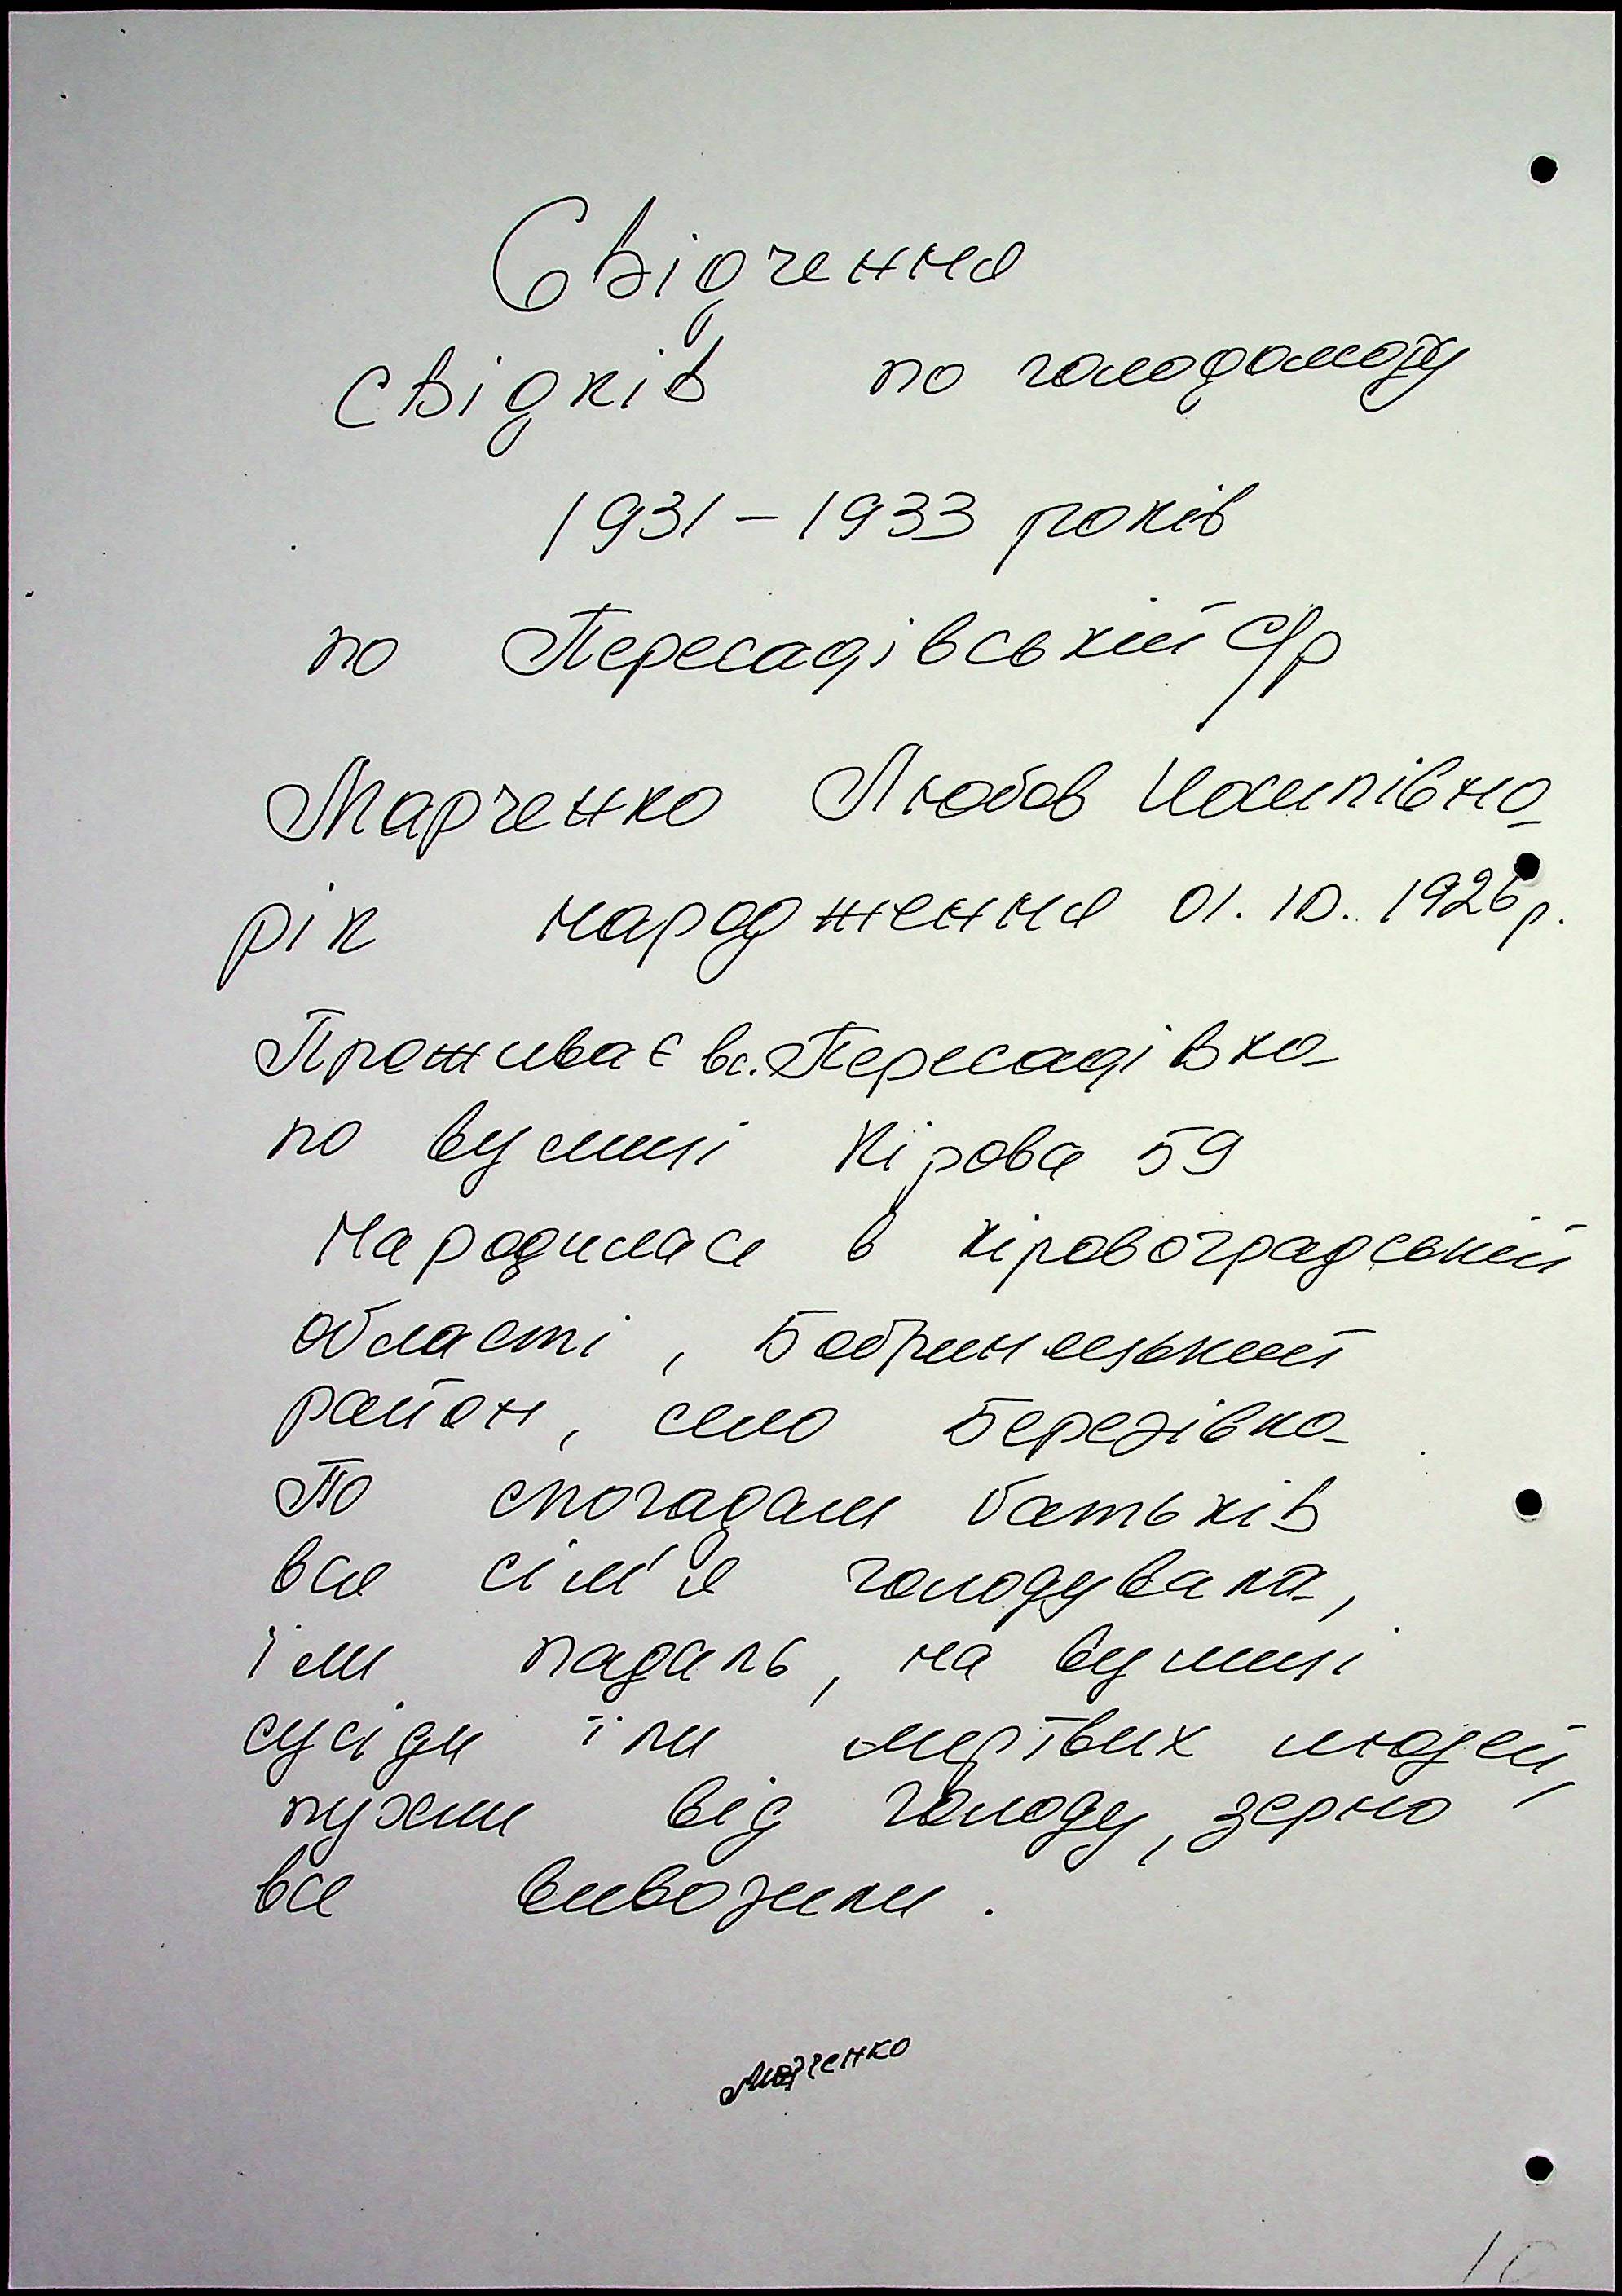 Свідчення
свідків по голодомору
1931-1933 років
по Пересадівській с/р
Марченко Любов Йосипівна
рік народження 01.10.1926р.
Проживає в с. Пересадівка
по вулиці Кірова 59
Народилася в Кіровоградській
області, Бобринецький
район, село Березівка
По спогадам батьків
вся сім'я голодувала,
їли падаль, на вулиці
сусіди їли мертвих людей,
пухли від голоду, зерно
все вивозили.
Марченко